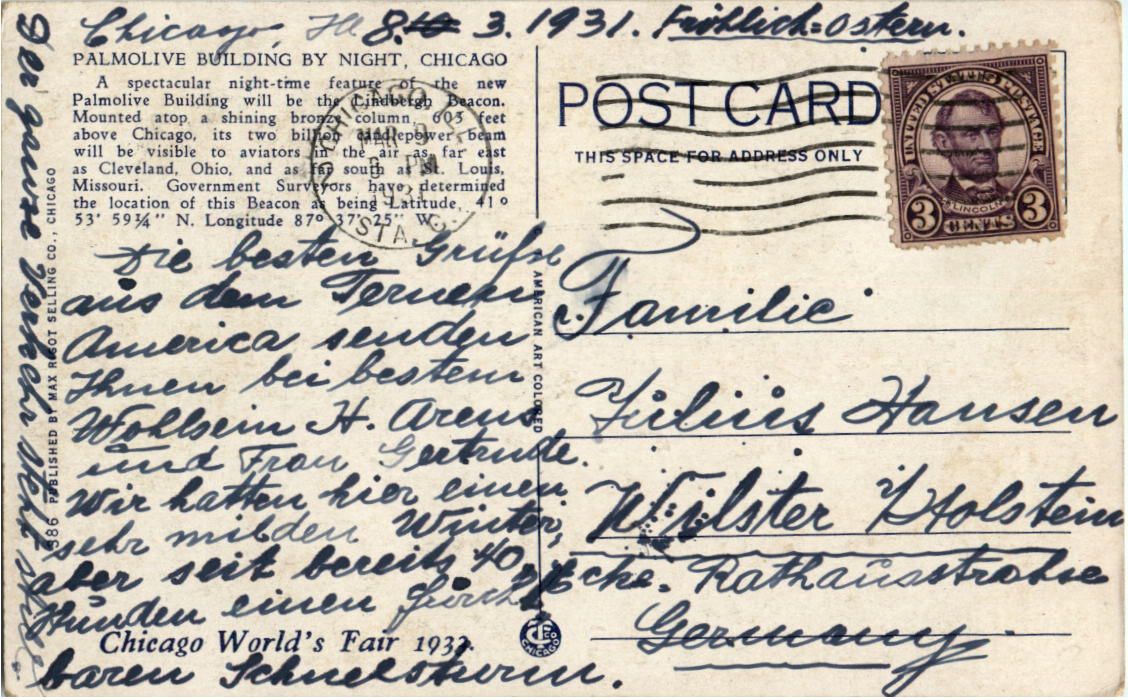 Chicago, Ill 8. 3. 1931. Fröhlich=Ostern.
PALMOLIVE BUILDING BY NIGHT, CHICAGO
A spectacular night-time feature of the new
Palmolive Building will be the Lindbergh Beacon.
Mounted atop a shining bronze column, 603 feet
above Chicago, its two billion candlepower beam
will be visible to aviators in the air as far east
as Cleveland, Ohio, and as far south as St. Louis,
Missouri. Government Surveyors have determined
the location of this Beacon as being Latitude, 41°
53' 59¾" N. Longitude 87° 37' 25" W.
Die besten Grüße
aus dem Fernen
America senden
Ihnen bei bestem
Wohlsein H. Arens
und Frau Gertrude.
Wir hatten hier einen
sehr milden Winter,
aber seit bereits 40
Stunden einen furcht
baren Schneesturm.
Der ganze Verkehr steht still
Chicago World's Fair 1933.
386 PUBLISHED BY MAX RIGOT SELLING CO., CHICAGO
AMERICAN ART COLORED
CHICAGO
POST CARD
THIS SPACE FOR ADDRESS ONLY
CHICAGO
MAR
PM
1931
STA.
UNITED STATES POSTAGE
LINCOLN
3 CENTS 3
Familie
Julius Hansen
Wilster Holstein
Ecke. Rathausstraße
Germany.